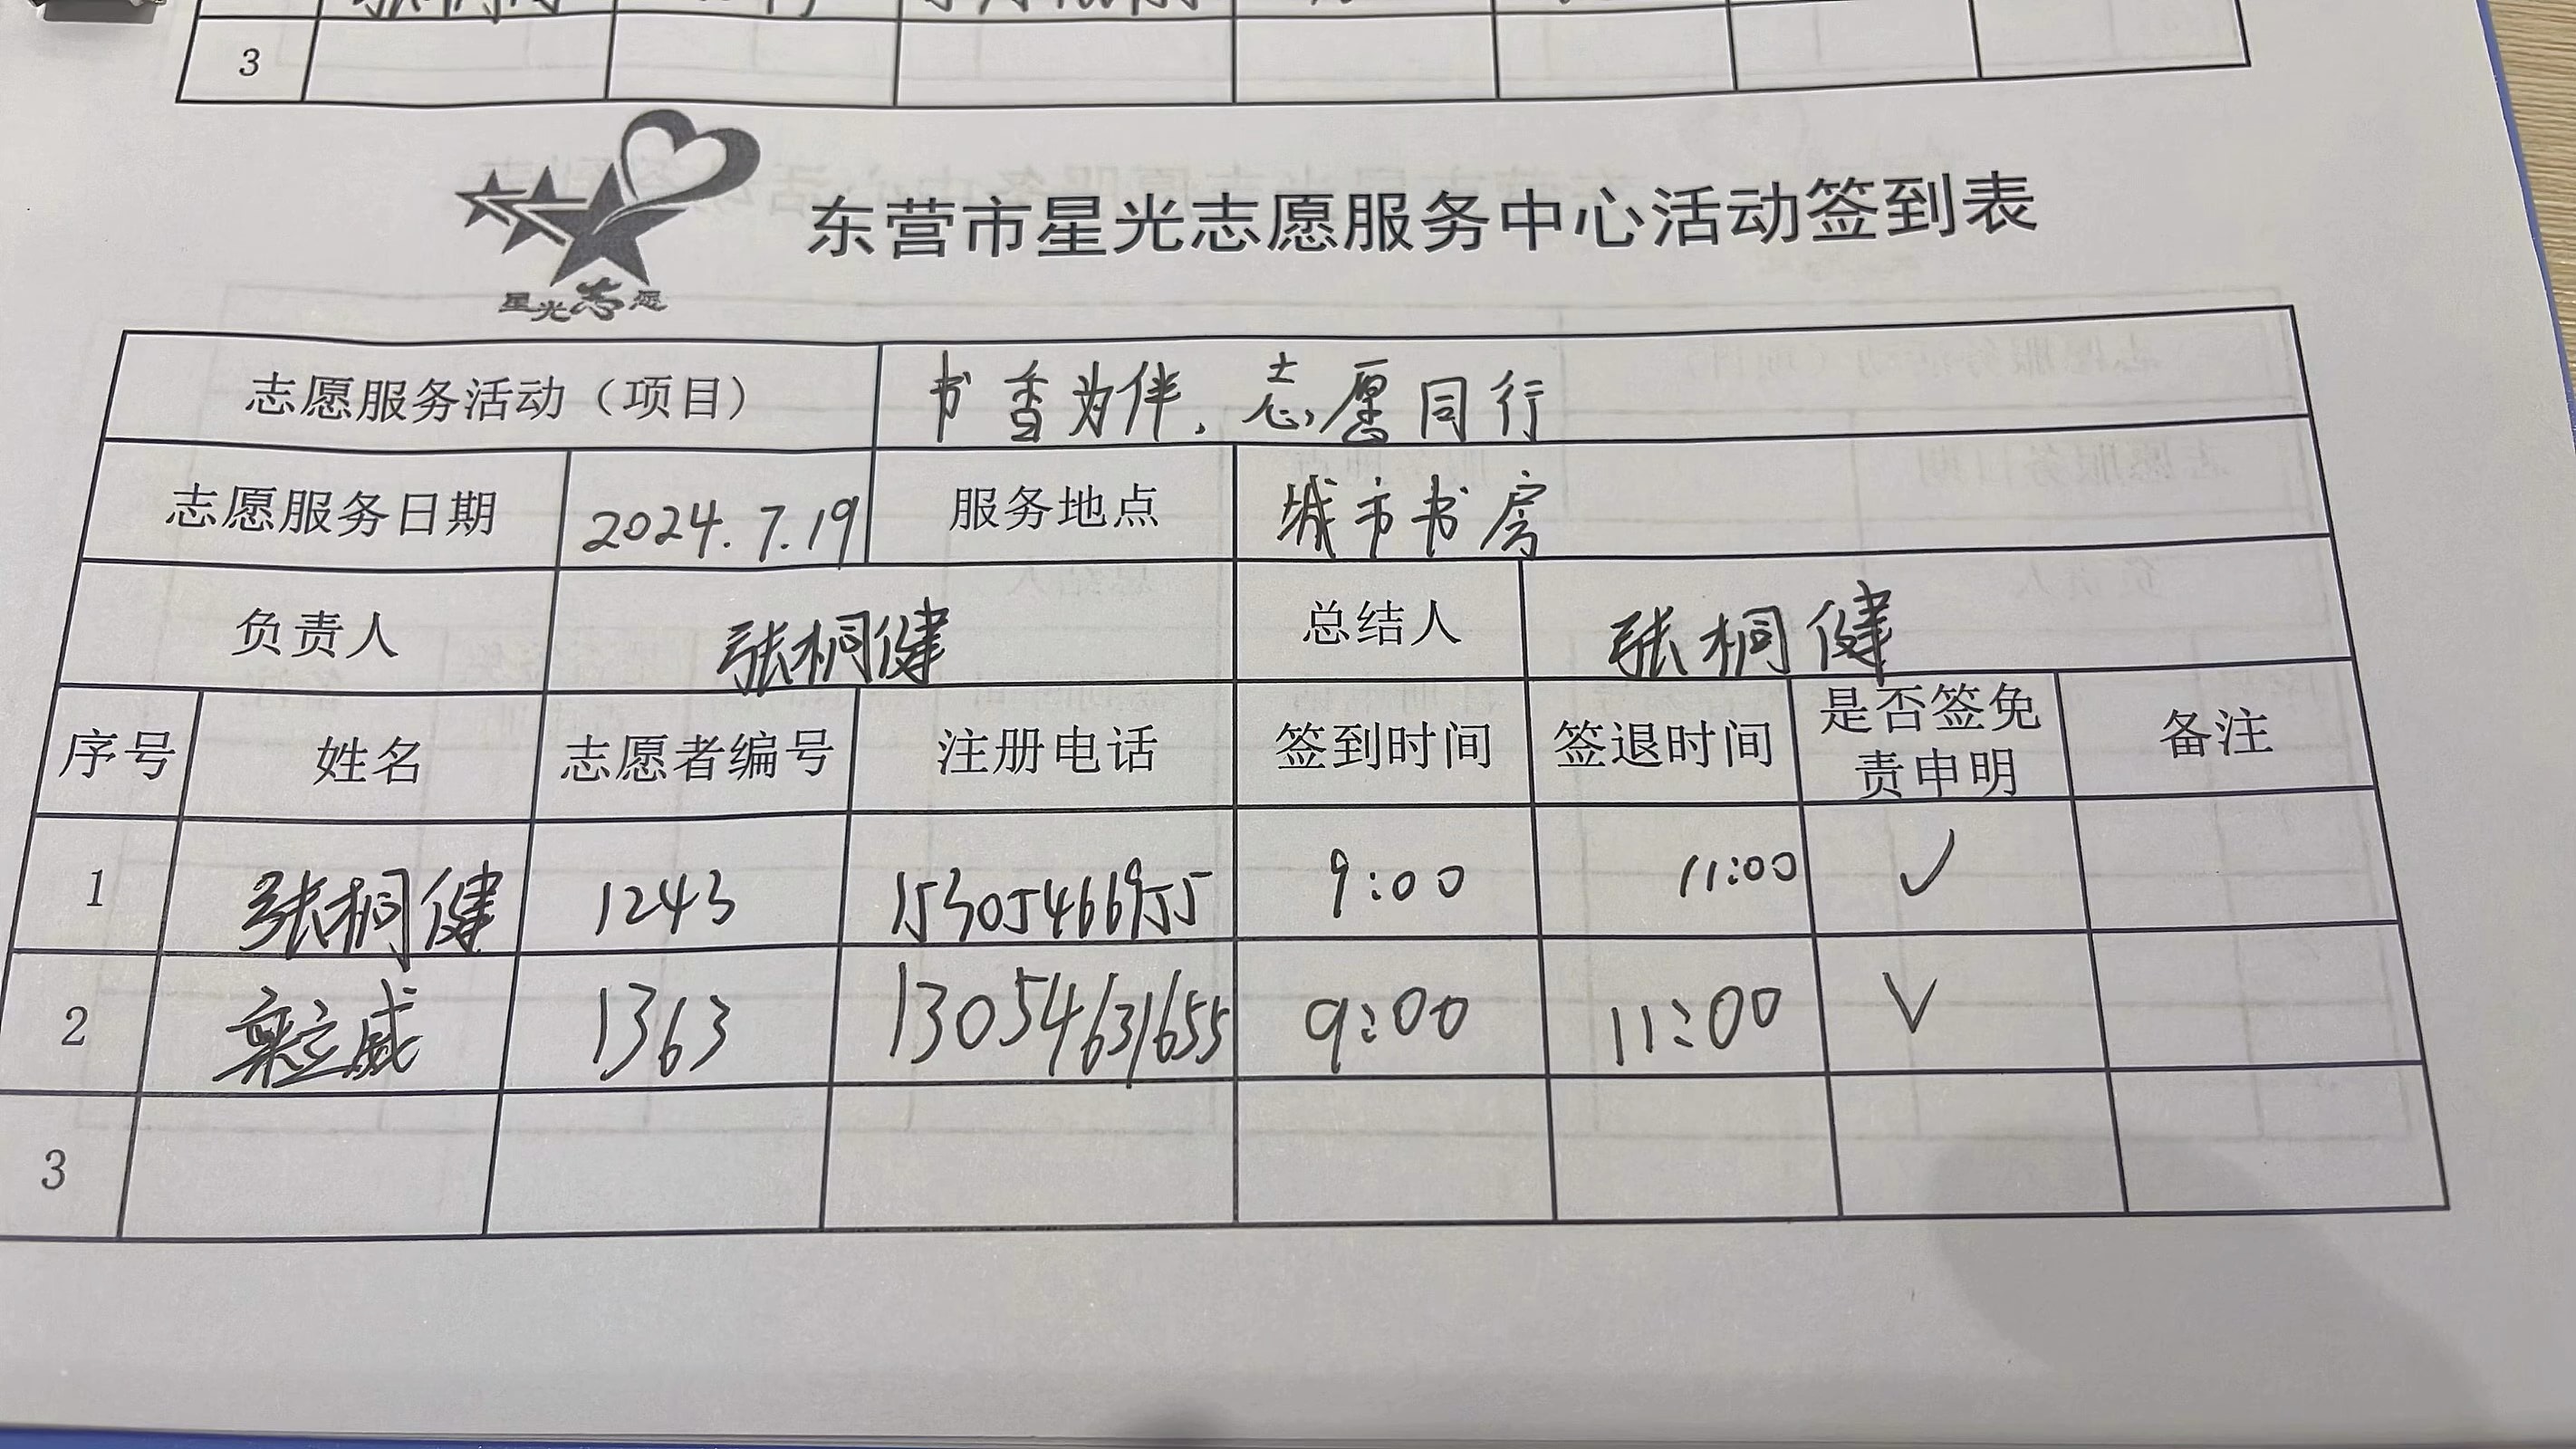 3
东营市星光志愿服务中心活动签到表
星光志愿
志愿服务活动（项目） 书香为伴、志愿同行
志愿服务日期 2024.7.19 服务地点 城市书房
负责人 张桐健 总结人 张桐健
序号 姓名 志愿者编号 注册电话 签到时间 签退时间 是否签免责申明 备注
1 张桐健 1243 15305466955 9:00 11:00 ✓
2 立威 1363 13054631655 9:00 11:00 ✓
3